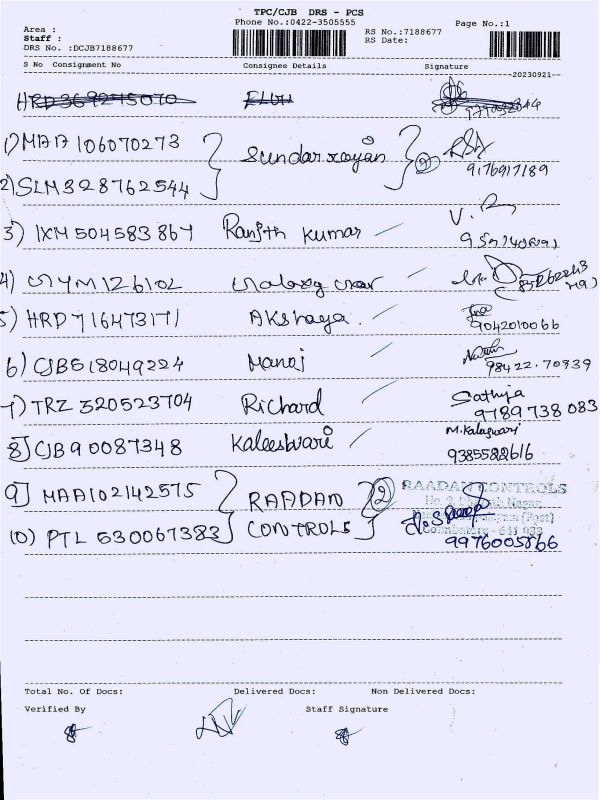 TPC/CJB DRS - PCS
Phone No.:0422-3505555
Page No.:1
Area :
Staff :
DRS No. :DCJB7188677
RS No.:7188677
RS Date:
S No Consignment No Consignee Details Signature
20230921
HRD369215070
1) MAA106070273 Sundarrajan 2
9176917189
2) SLM328762544
3) IXM504583867 Ranjith Kumar
4)
5) HRD716473171 Akshaya
9042010066
6) CJB518049224 Manoj
98422.70939
7) TRZ 520523704 Richard Sathya
9789738083
8) CJB90087348 Kaleeswari
9385582616
9) MAA102142575 RAADAN 2 RAADAN CONTROLS
10) PTL 630067383 CONTROLS
9976005866
Total No. Of Docs: Delivered Docs: Non Delivered Docs:
Verified By Staff Signature